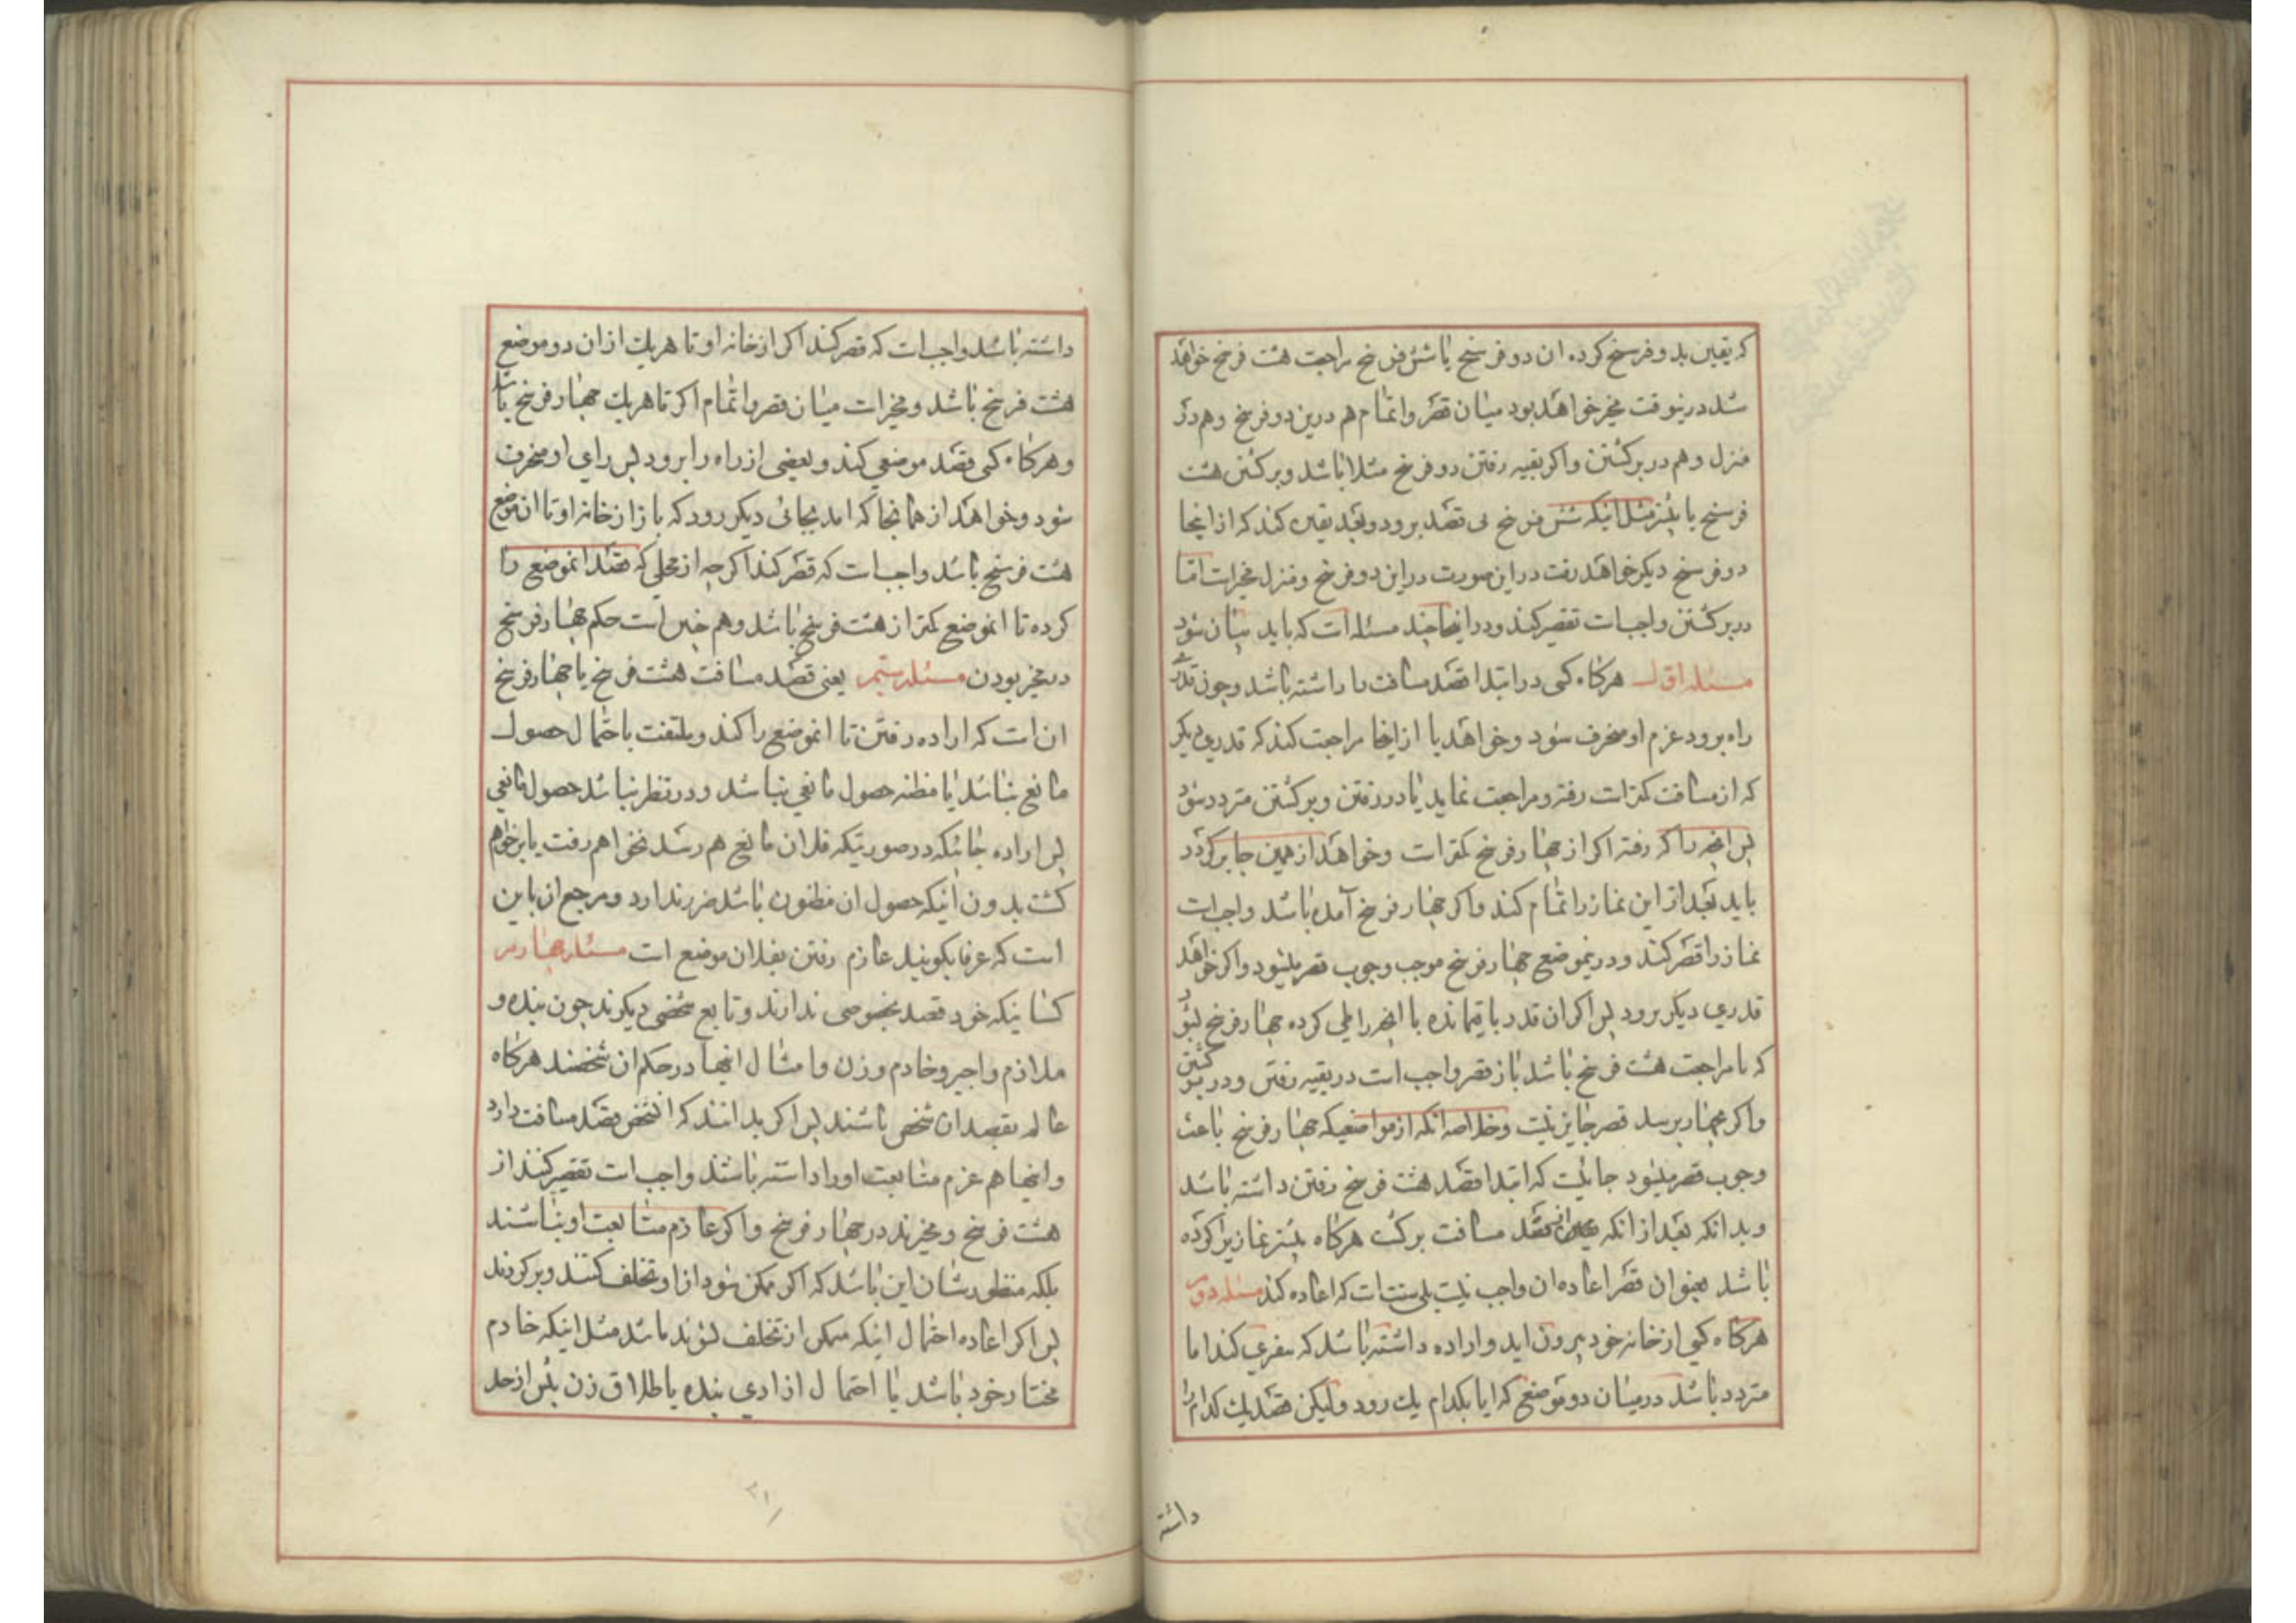 که یقین بدو فرسخ کرده ان دو فرسخ با شش فرسخ مراجعت هشت فرسخ خواهد
شد درینوقت مخیر خواهد بود میان قصر و اتمام هم درین دو فرسخ و هم در
منزل و هم در برکشتن واکر بقیه رفتن دو فرسخ مثلا باشد و برکشتن هشت
فرسخ یا بیشتر مثل اینکه شش فرسخ بی قصد برود و بعد یقین کند که از اینجا
دو فرسخ دیکر خواهد رفت در این صورت در این دو فرسخ و منزل مخیر است اما
در برکشتن واجب است تقصیر کند و در اینجا چند مسئله است که باید بیان شود
مسئله اول هرکاه کسی در ابتدا قصد مسافت را داشته باشد و چون قدری
راه برود عزم او منحرف شود و خواهد یا از اینجا مراجعت کند که قدری دیکر
که از مسافت کمتر است رفته و مراجعت نماید یا در رفتن و برکشتن متردد شود
پس انچه را که رفته اکر از چهار فرسخ کمتر است و خواهد از همین جا برکردد
باید بعد از این نماز را تمام کند واکر چهار فرسخ آمده باشد واجب است
نماز را قصر کند و درینموضع چهار فرسخ موجب وجوب قصر میشود واکر خواهد
قدری دیکر برود پس اکر ان قدر باقیمانده با انچه را طی کرده چهار فرسخ بشود
که با مراجعت هشت فرسخ باشد باز قصر واجب است در بقیه رفتن و در برکشتن
واکر بچهار نرسد قصر جایز نیست وخلاصه انکه از مواضعیکه چهار فرسخ باعث
وجوب قصر میشود جائیست که ابتدا قصد هشت فرسخ رفتن داشته باشد
وبدانکه بعد از انکه از قصد مسافت برکشت هرکاه پیشتر نمازیرا کرده
باشد بعنوان قصر اعاده ان واجب نیست بلی سنت است که اعاده کند مسئله دوم
هرکاه کسی از خانه خود بیرون اید و اراده داشته باشد که سفری کند اما
متردد باشد در میان دو موضع که ایا بکدام یک رود ولیکن قصد یک کدام را
داشته
داشته باشد واجب است که قصر کند اکر از خانه او تا هریک از ان دو موضع
هشت فرسخ باشد و مخیر است میان قصر و اتمام اکر تا هریک چهار فرسخ باشد
وهرکاه کسی قصد موضعی کند و بعضی از راه را برود پس رای او منحرف
شود و خواهد از همانجا که امد بجائی دیکر رود که باز از خانه او تا ان موضع
هشت فرسخ باشد واجب است که قصر کند اکرچه از محلی که قصد انموضع را
کرده تا انموضع کمتر از هشت فرسخ باشد و هم چنین است حکم چهار فرسخ
در مخیر بودن مسئله سیم یعنی قصد مسافت هشت فرسخ یا چهار فرسخ
ان است که اراده رفتن تا انموضع را کند و ملتفت باحتمال حصول
مانع نباشد یا مظنه حصول مانعی نباشد و در نظر نباشد حصول مانعی
پس اراده جائیکه در صورتیکه فلان مانع هم رسد نخواهم رفت یا برخواهم
کشت بدون اینکه حصول ان مظنون باشد ضرر ندارد و مرجع ان باین
است که عرفا بکویند عازم رفتن بفلان موضع است مسئله چهارم
کسانیکه خود قصد بخصوصی ندارند و تابع شخصی دیکرند چون بنده و
ملازم و اجیر و خادم و زن و امثال انها در حکم ان شخصند هرکاه
عالم بقصد ان شخص باشند پس اکر بدانند که انشخص قصد مسافت دارد
وانها هم عزم متابعت او را داشته باشند واجب است تقصیر کنند از
هشت فرسخ و مخیرند در چهار فرسخ واکر عازم متابعت او نباشند
بلکه منظورشان این باشد که اکر ممکن شود از او تخلف کنند و برکردند
پس اکر اعاده احتمال اینکه ممکن از تخلف شوند باشد مثل اینکه خادم
مختار خود باشد یا احتمال ازادی بنده یا طلاق زن پیش از حد
۲۱